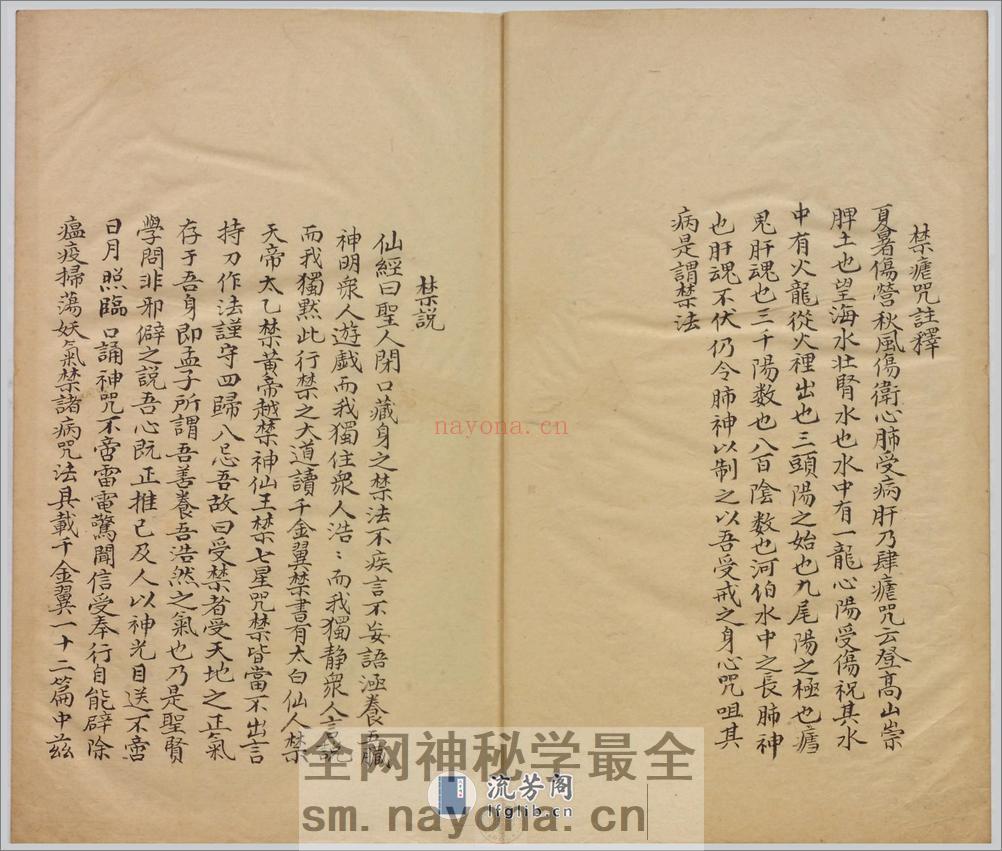 禁瘧咒註釋
夏暑傷營秋風傷衛心肺受病肝乃肆瘧咒云登高山崇
脾土也望海水壮腎水也水中有一龍心陽受傷祝其水
中有火龍從火裡出也三頭陽之始也九尾陽之極也瘧
鬼肝魂也三千陽数也八百陰数也河伯水中之長肺神
也肝魂不伏仍令肺神以制之以吾受戒之身心咒咀其
病是謂禁法
禁説
仙經曰聖人閉口藏身之禁法不疾言不妄語涵養五臟
神明衆人遊戲而我獨住衆人浩〻而我獨静衆人言説
而我獨黙此行禁之大道讀千金翼禁書有太白仙人禁
天帝太乙禁黄帝越禁神仙王禁七星咒禁皆當不出言
持刀作法謹守四歸八忌吾故曰受禁者受天地之正氣
存于吾身即孟子所謂吾善養吾浩然之氣也乃是聖賢
學問非邪僻之説吾心既正推己及人以神光目送不啻
日月照臨口誦神咒不啻雷電驚聞信受奉行自能辟除
瘟疫掃蕩妖氣禁諸病咒法具載千金翼一十二篇中兹
nayona.cn
全网神秘学最全
流芳阁
lfglib.cn
sm.nayona.cn